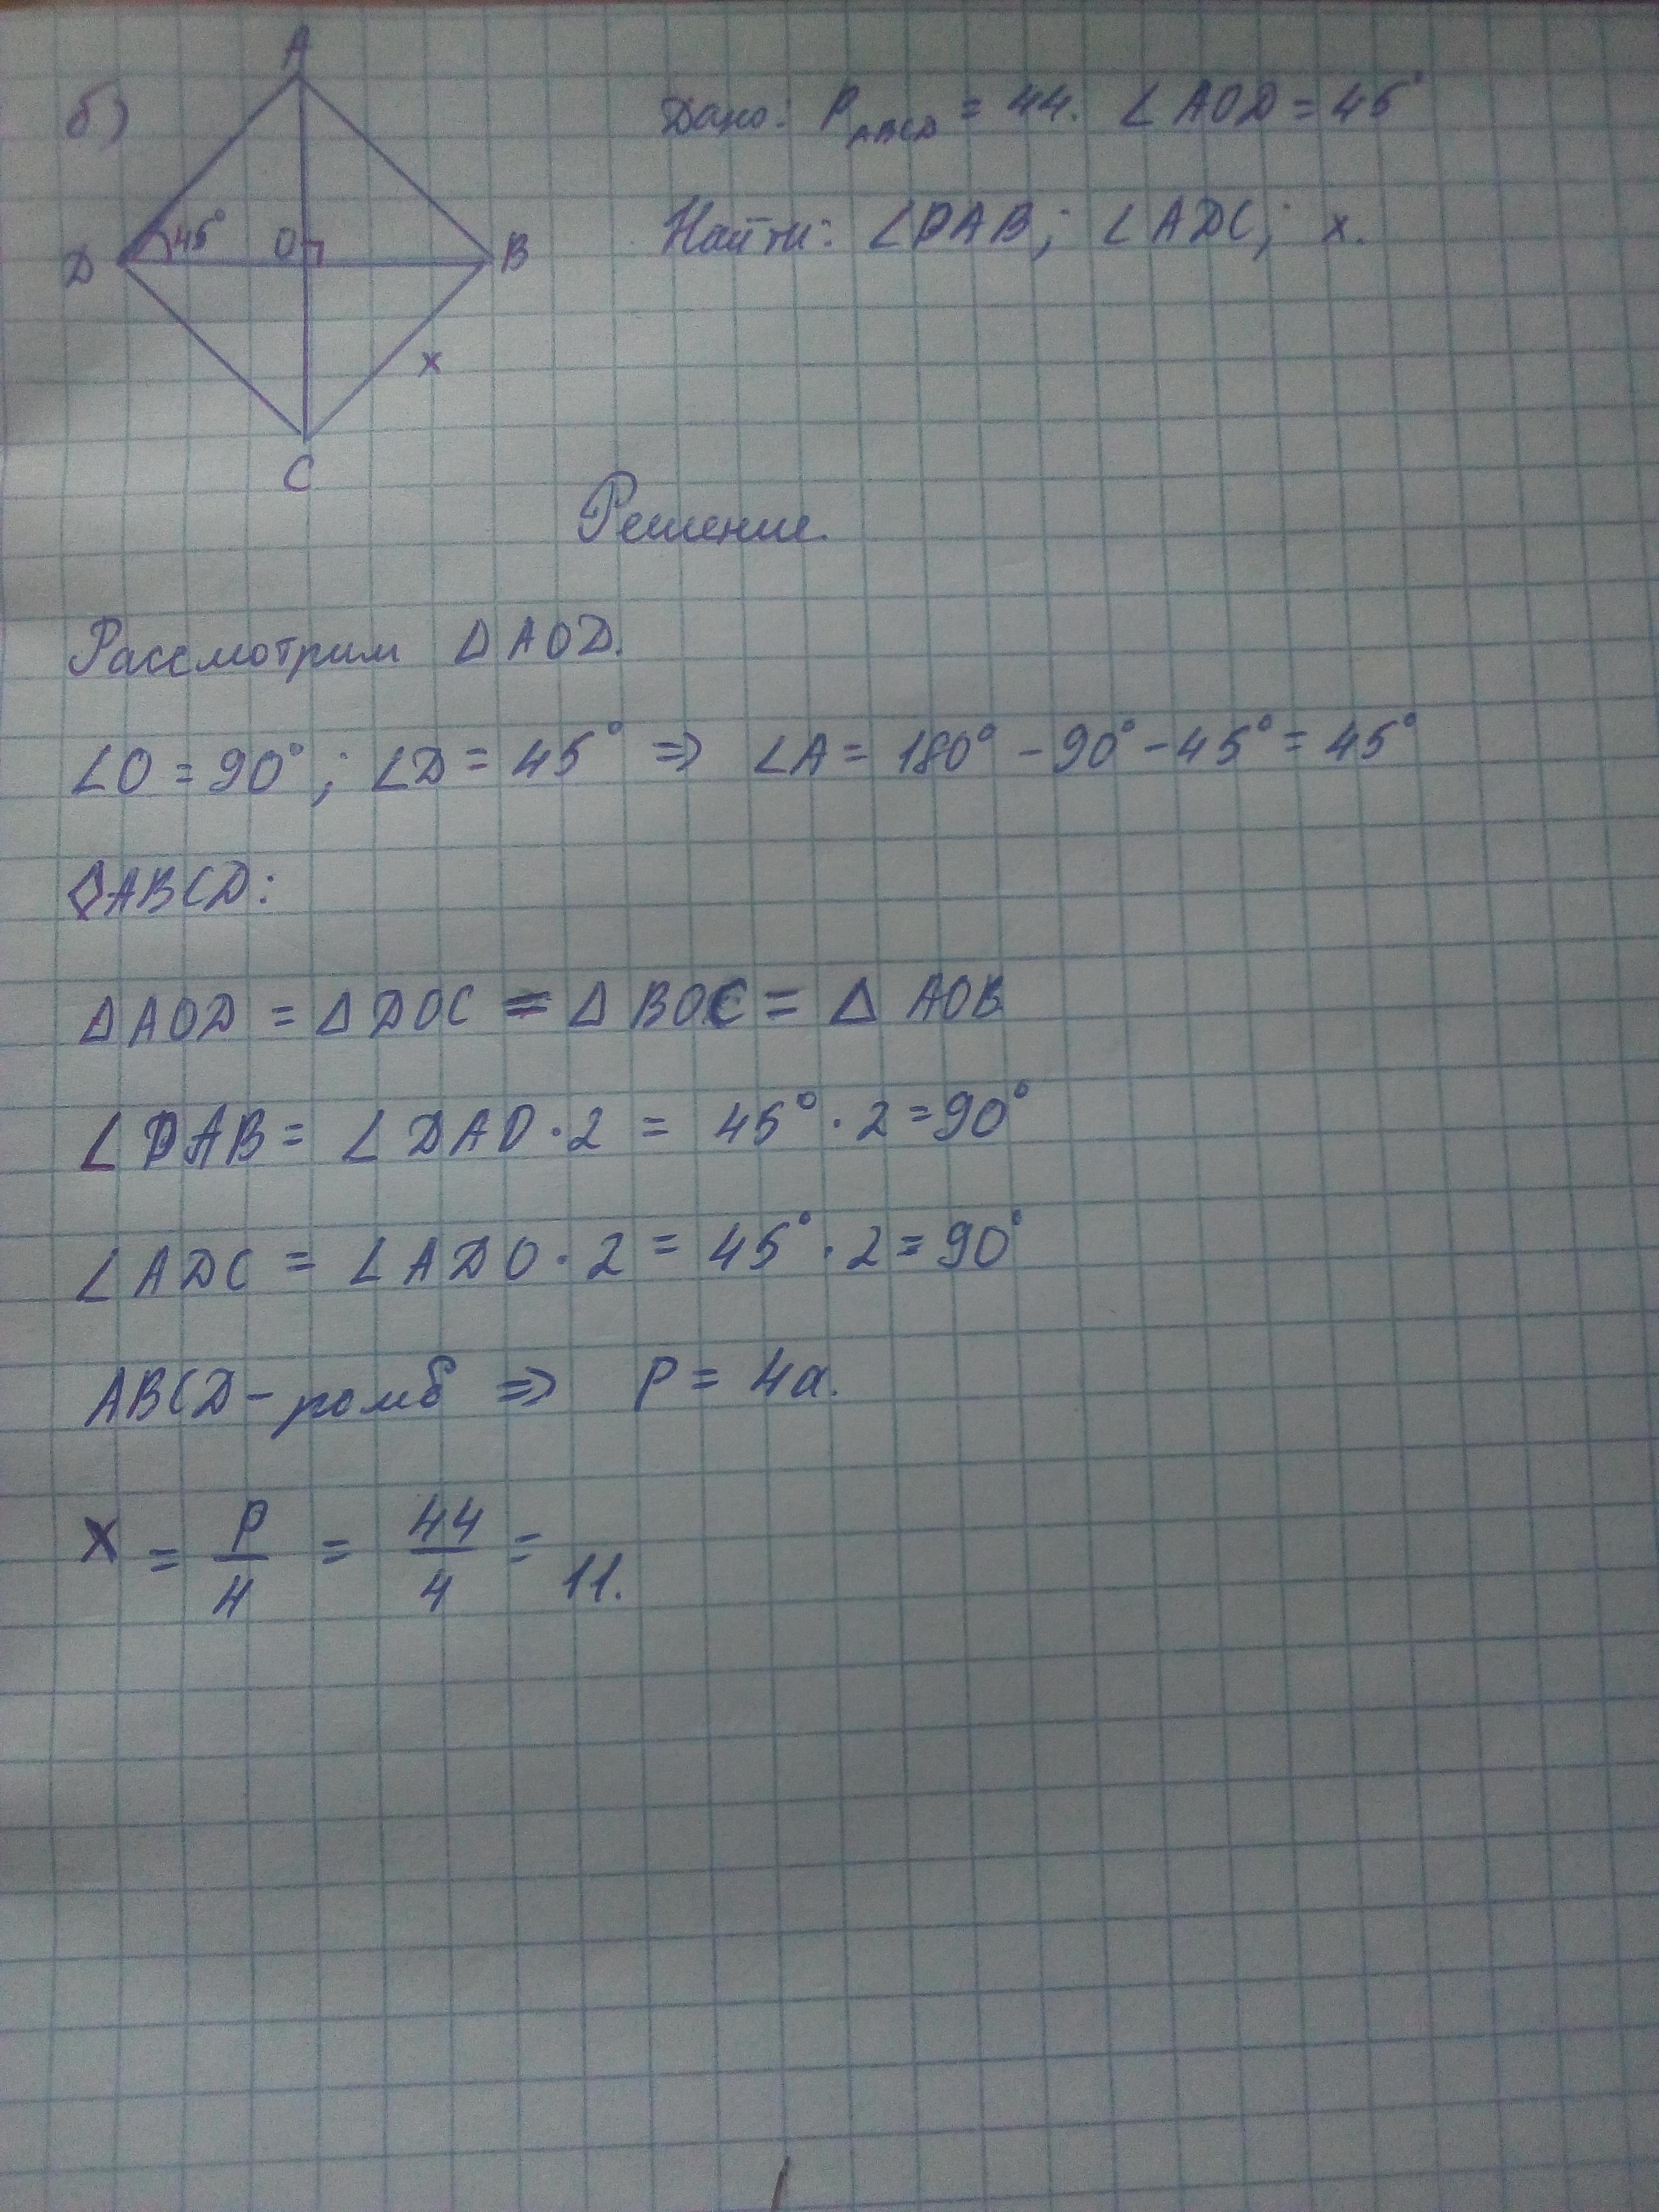 б)
A
45°
O
D
B
x
C
Дано: P ABCD = 44. ∠AOD = 45°
Найти: ∠DAB; ∠ADC; x.
Решение.
Рассмотрим △AOD.
∠O = 90°; ∠D = 45° => ∠A = 180° - 90° - 45° = 45°
◊ABCD:
△AOD = △DOC = △BOC = △AOB
∠DAB = ∠DAO · 2 = 45° · 2 = 90°
∠ADC = ∠ADO · 2 = 45° · 2 = 90°
ABCD - ромб => P = 4a.
x = P/4 = 44/4 = 11.